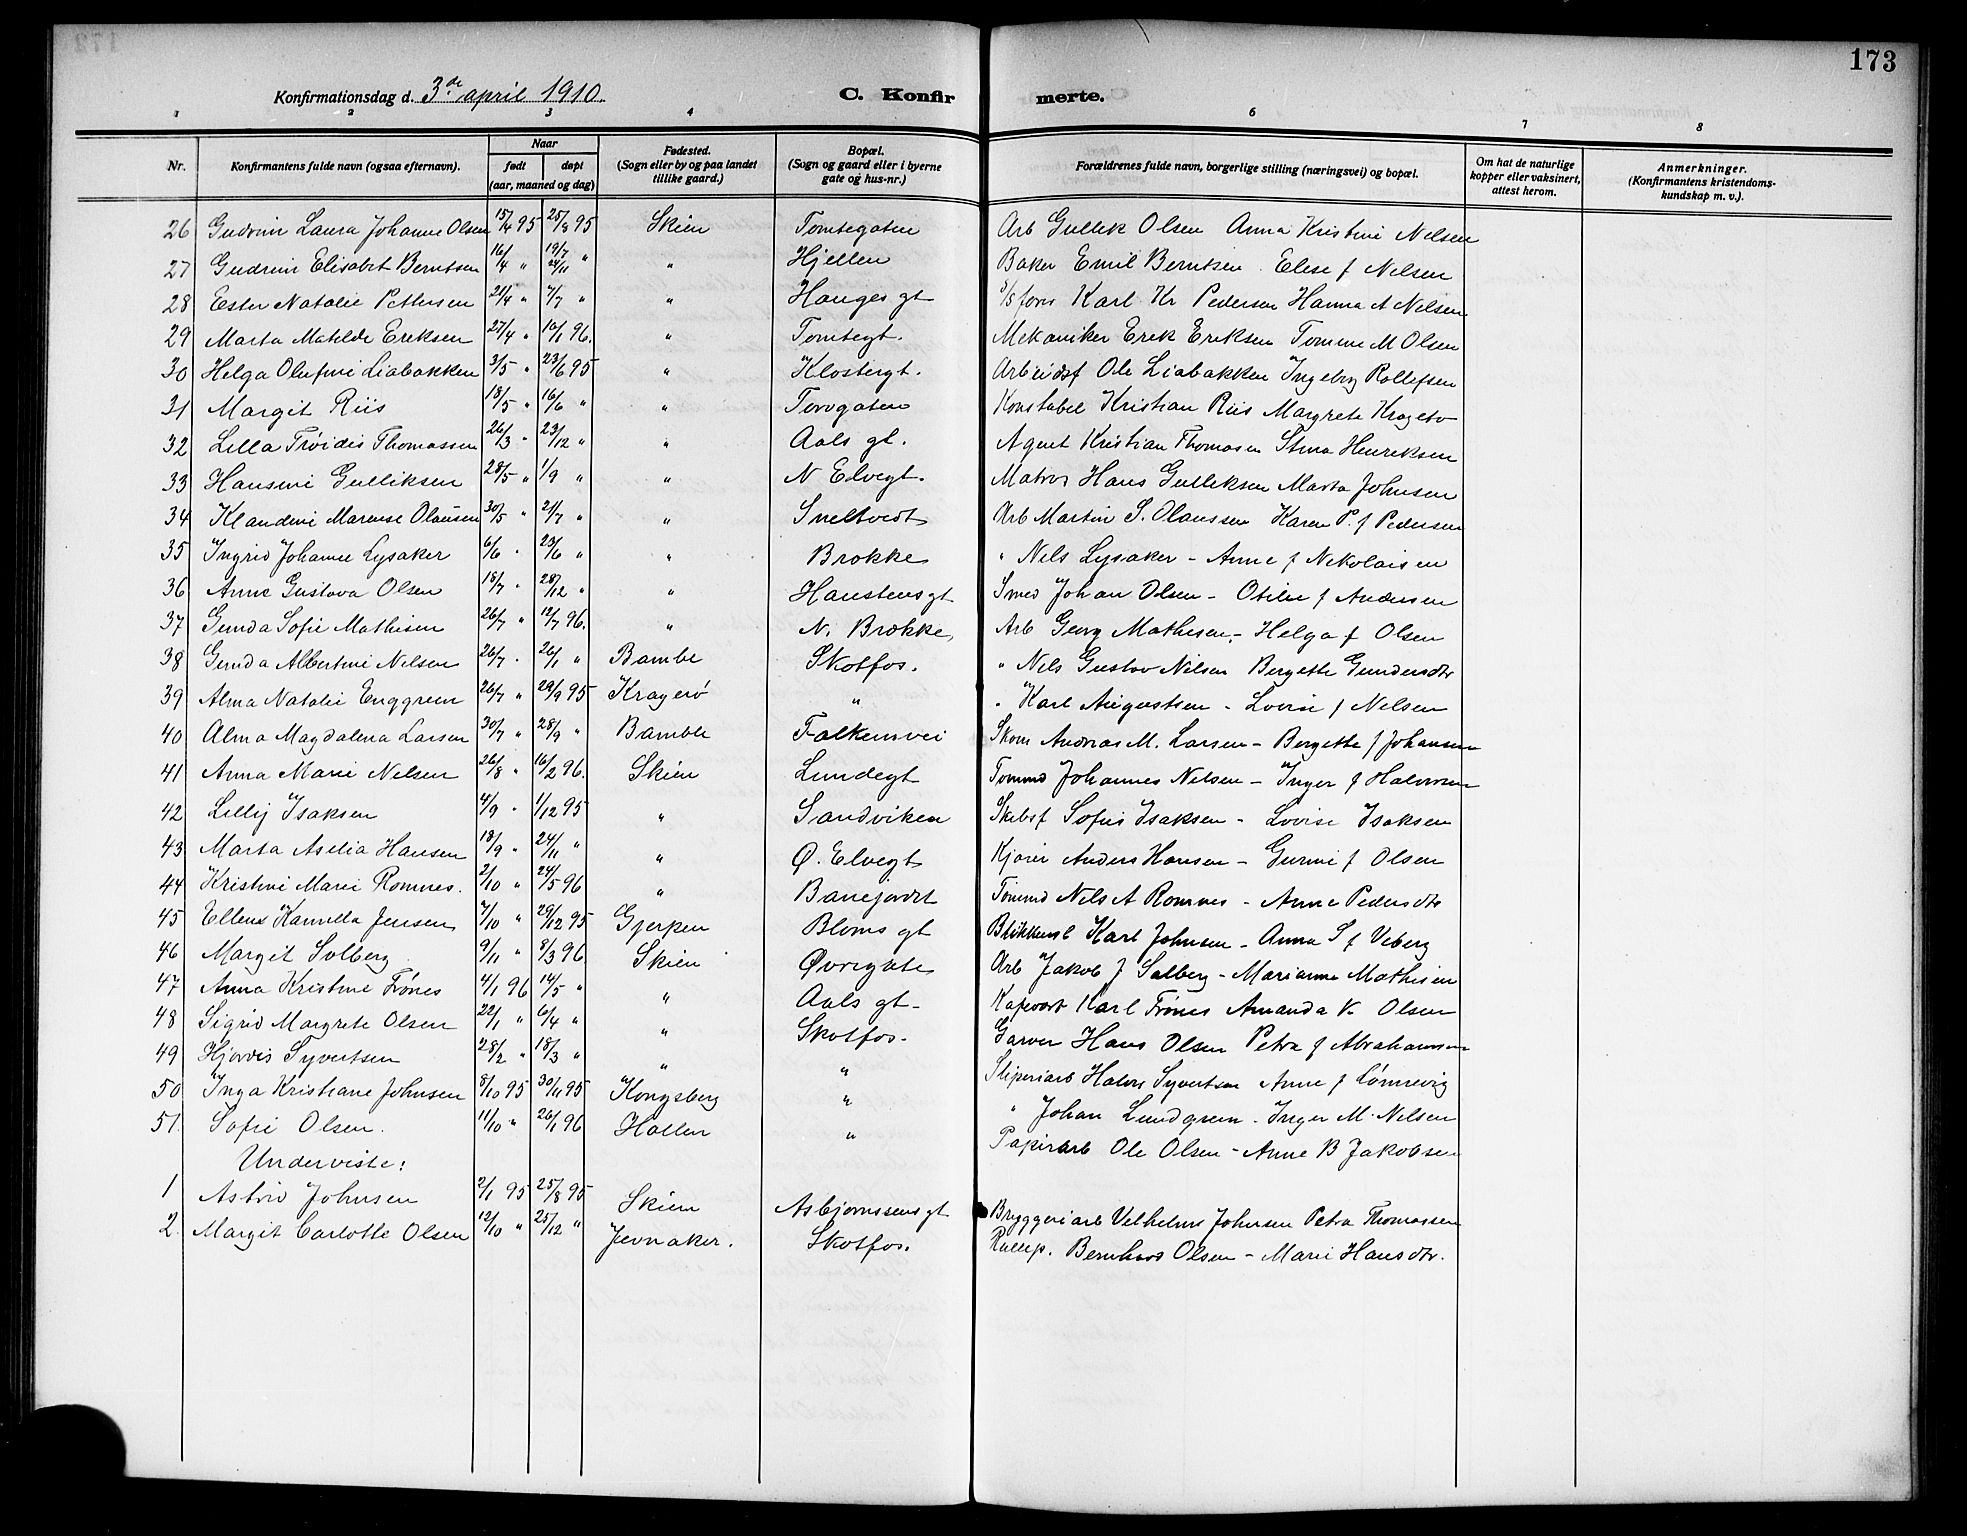 173
Konfirmationsdag d. 3de april 1910.
C. Konfirmerte.
1 2 3 4 6 7 8
Nr. Konfirmantens fulde navn (ogsaa efternavn). Naar født døpt (aar, maaned og dag) Fødested. (Sogn eller by og paa landet tillike gaard.) Bopæl. (Sogn og gaard eller i byerne gate og hus-nr.) Forældrenes fulde navn, borgerlige stilling (næringsvei) og bopæl. Om hat de naturlige kopper eller vaksinert, attest herom. Anmerkninger. (Konfirmantens kristendoms-kundskap m. v.).
26 Gudrun Laura Johanne Olsen 15/4 95 25/8 95 Skien Tomtegaten Arb Gullik Olsen Anna Kristine Nelsen
27 Gudrun Elisabet Berntsen 16/4 " 19/7 24/11 " " Hjellen Baker Emil Berntsen Elise f Nelsen
28 Ester Natalie Pettersen 21/4 " 7/7 " " Hauges gt Karl Kr Pedersen Hanna A Nelsen
29 Marta Matilde Eriksen 27/4 " 10/1 96. " Tomtegt. Mekaniker Erik Eriksen Tomine M Olsen
30 Helga Olufine Liabakken 3/5 " 23/6 95 " Klostergt. Arbeidsf Ole Liabakken Ingeborg Rollefsen
31 Margit Riis 18/5 " 16/6 " " Torvgaten Konstabel Kristian Riis Margrete
32 Lilla Frøidis Thomassen 26/3 " 23/12 " " Aals gt. Agent Kristian Thomasen Stina Henriksen
33 Hansine Gulliksen 28/5 " 1/9 " " N Elvegt. Matros Hans Gulliksen Marta Johnsen
34 Klaudine Marense Olausen 30/5 " 21/7 " " Sneltvedt Arb Martin S. Olaussen Karen P. f Pedersen
35 Ingrid Johanne Lysaker 6/6 " 23/6 " " Brokke " Nels Lysaker - Anne f Nikolaisen
36 Anne Gustava Olsen 18/7 " 28/12 " " Hanstensgt Smed Johan Olsen - Otilie f Andersen
37 Gunda Sofie Mathisen 26/7 " 12/7 96. " N. Brokke Arb Georg Mathisen - Helga f Olsen
38 Gunda Albertine Nelsen 26/7 " 26/1 " Bamble Skotfos. " Nels Gustav Nilsen Bergette Gundersdtr
39 Alma Natalie Enggren 26/7 " 29/9 95 Kragerø " " Karl Augustsen - Lovise f Nelsen
40 Alma Magdalena Larsen 30/7 " 28/9 " Bamble Falkumvei Skom Andreas M. Larsen - Bergette f Johansen
41 Anna Marie Nelsen 26/8 " 16/2 96. Skien Lundegt Tømmd Johannes Nelsen - Inger f Halvorsen
42 Lilly Isaksen 4/9 " 1/12 95 " Sandviken Skibsf Sofus Isaksen - Lovise Isaksen
43 Marta Aselia Hansen 18/9 " 24/11 " " Ø. Elvegt Kjører Anders Hansen - Gurine f Olsen
44 Kristine Marie Romnes. 2/10 " 24/5 96 " Banejordet Tømmd Nils A Romnes - Anne Pedersdtr
45 Ellen Kamilla Jensen 7/10 " 29/12 95 Gjerpen Bloms gt Blikkensl Karl Johnsen - Anna S f Veberg
46 Margit Solberg 9/11 " 8/3 96 Skien Øvregate Arb Jakob J Solberg - Marianne Mathisen
47 Anna Kristine Frønes 4/1 96 14/5 " " Aals gt - Kafevært Karl Frønes Amanda K. Olsen
48 Sigrid Margrete Olsen 22/1 " 6/4 " " Skotfos. Garver Hans Olsen Petra f Abrahamsen
49 Hjørdis Syvertsen 28/2 " 18/3 " " " Sliperiarb Halvor Syvertsen Anne f Lønnevig
50 Inga Kristiane Johnsen 8/10 95 30/11 95 Kongsberg " " Johan Lundgren - Inger M. Nelsen
51. Sofie Olsen. 11/10 " 26/1 96 Hollen " Papirarb Ole Olsen - Anne B Jakobsen
Underviste:
1 Astrid Johnsen 2/1 95 25/8 95 Skien Asbjørnssens gt Bryggeriarb Vilhelm Johnsen Petra Thomassen
2. Margit Carlotte Olsen 12/10 " 25/12 " Jevnaker. Skotfos. Bernhard Olsen - Marie Hansdtr.